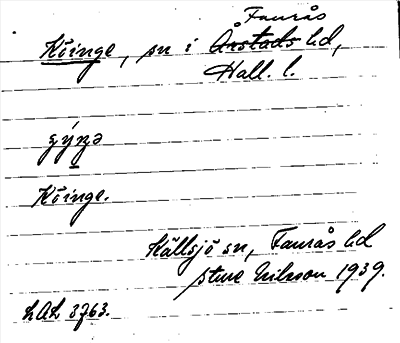 Faurås
Köinge, sn i Årstads hd,
Hall. l.
Köinge.
Källsjö sn, Faurås hd
Sture Nilsson 1939.
LAL 3763.